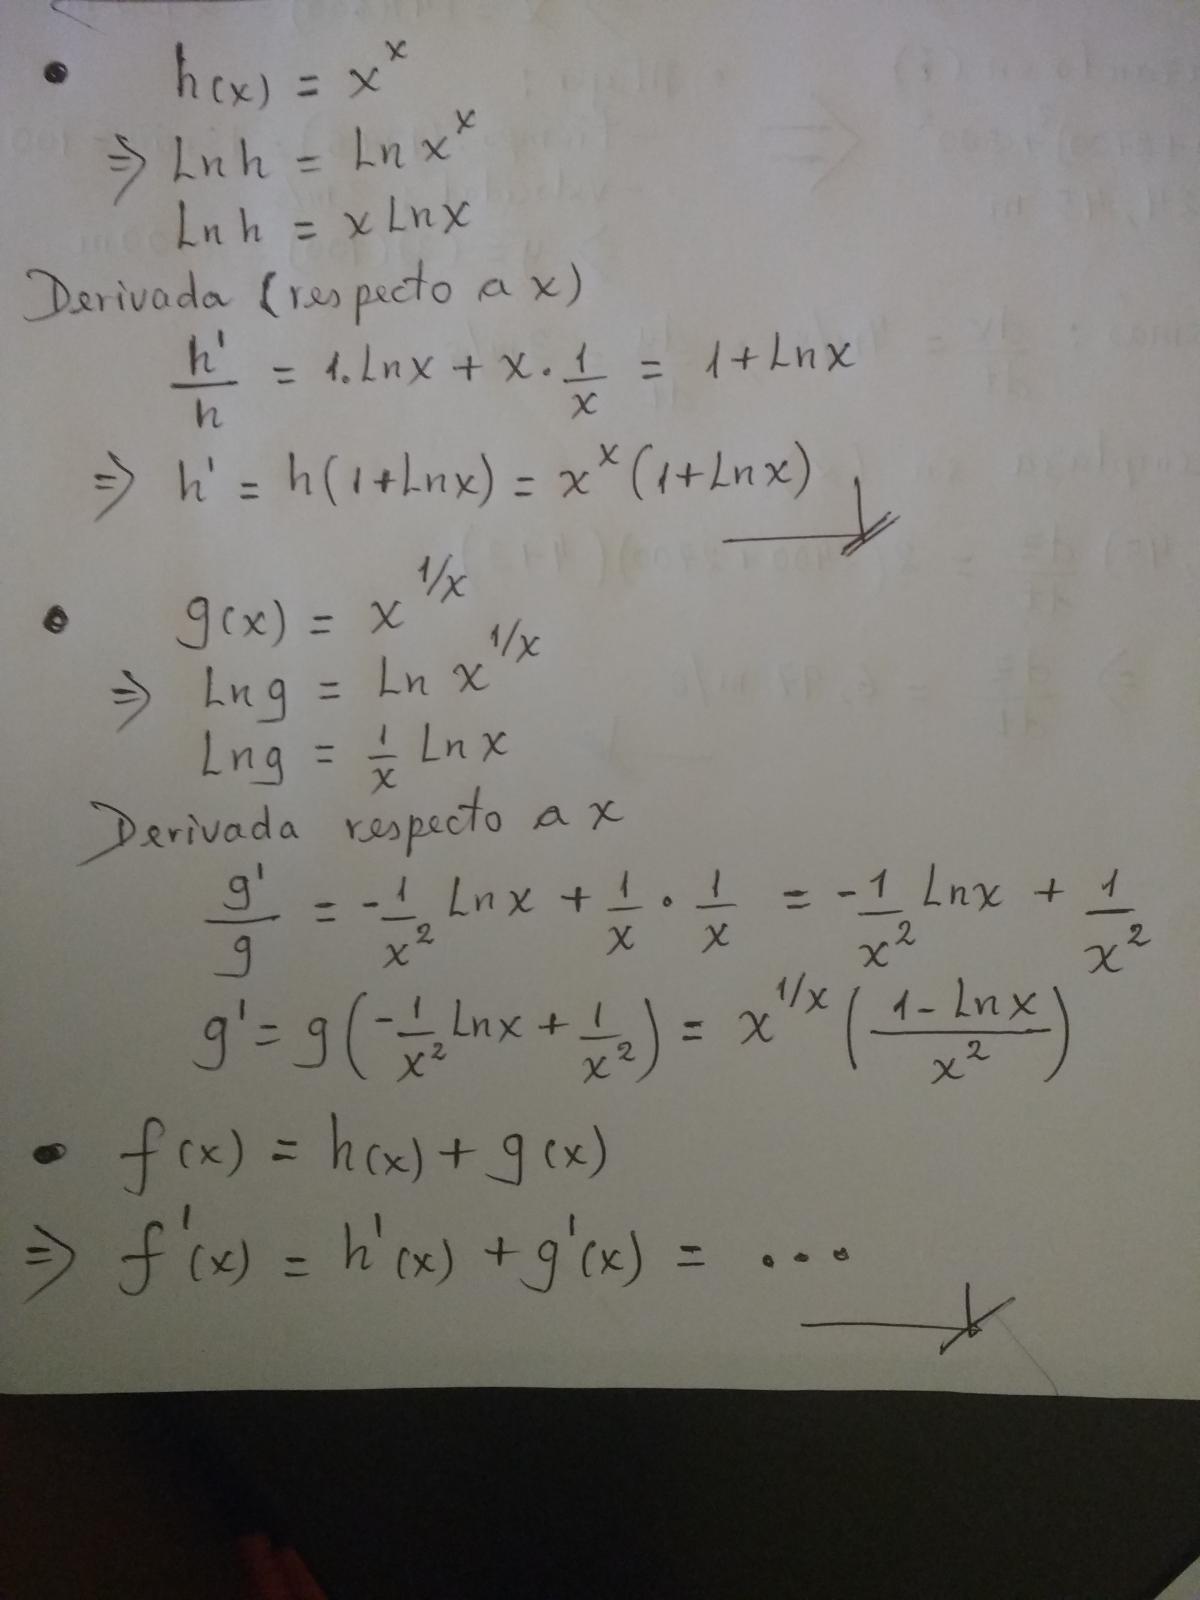 • h(x) = x^x
⇒ Ln h = Ln x^x
Ln h = x Ln x
Derivada (respecto a x)
h'/h = 1.Lnx + x · 1/x = 1 + Lnx
⇒ h' = h(1+Lnx) = x^x (1+Lnx)
• g(x) = x^1/x
⇒ Ln g = Ln x^1/x
Ln g = 1/x Ln x
Derivada respecto a x
g'/g = -1/x² Lnx + 1/x · 1/x = -1/x² Lnx + 1/x²
g' = g(-1/x² Lnx + 1/x²) = x^1/x (1 - Lnx/x²)
• f(x) = h(x) + g(x)
⇒ f'(x) = h'(x) + g'(x) = ...